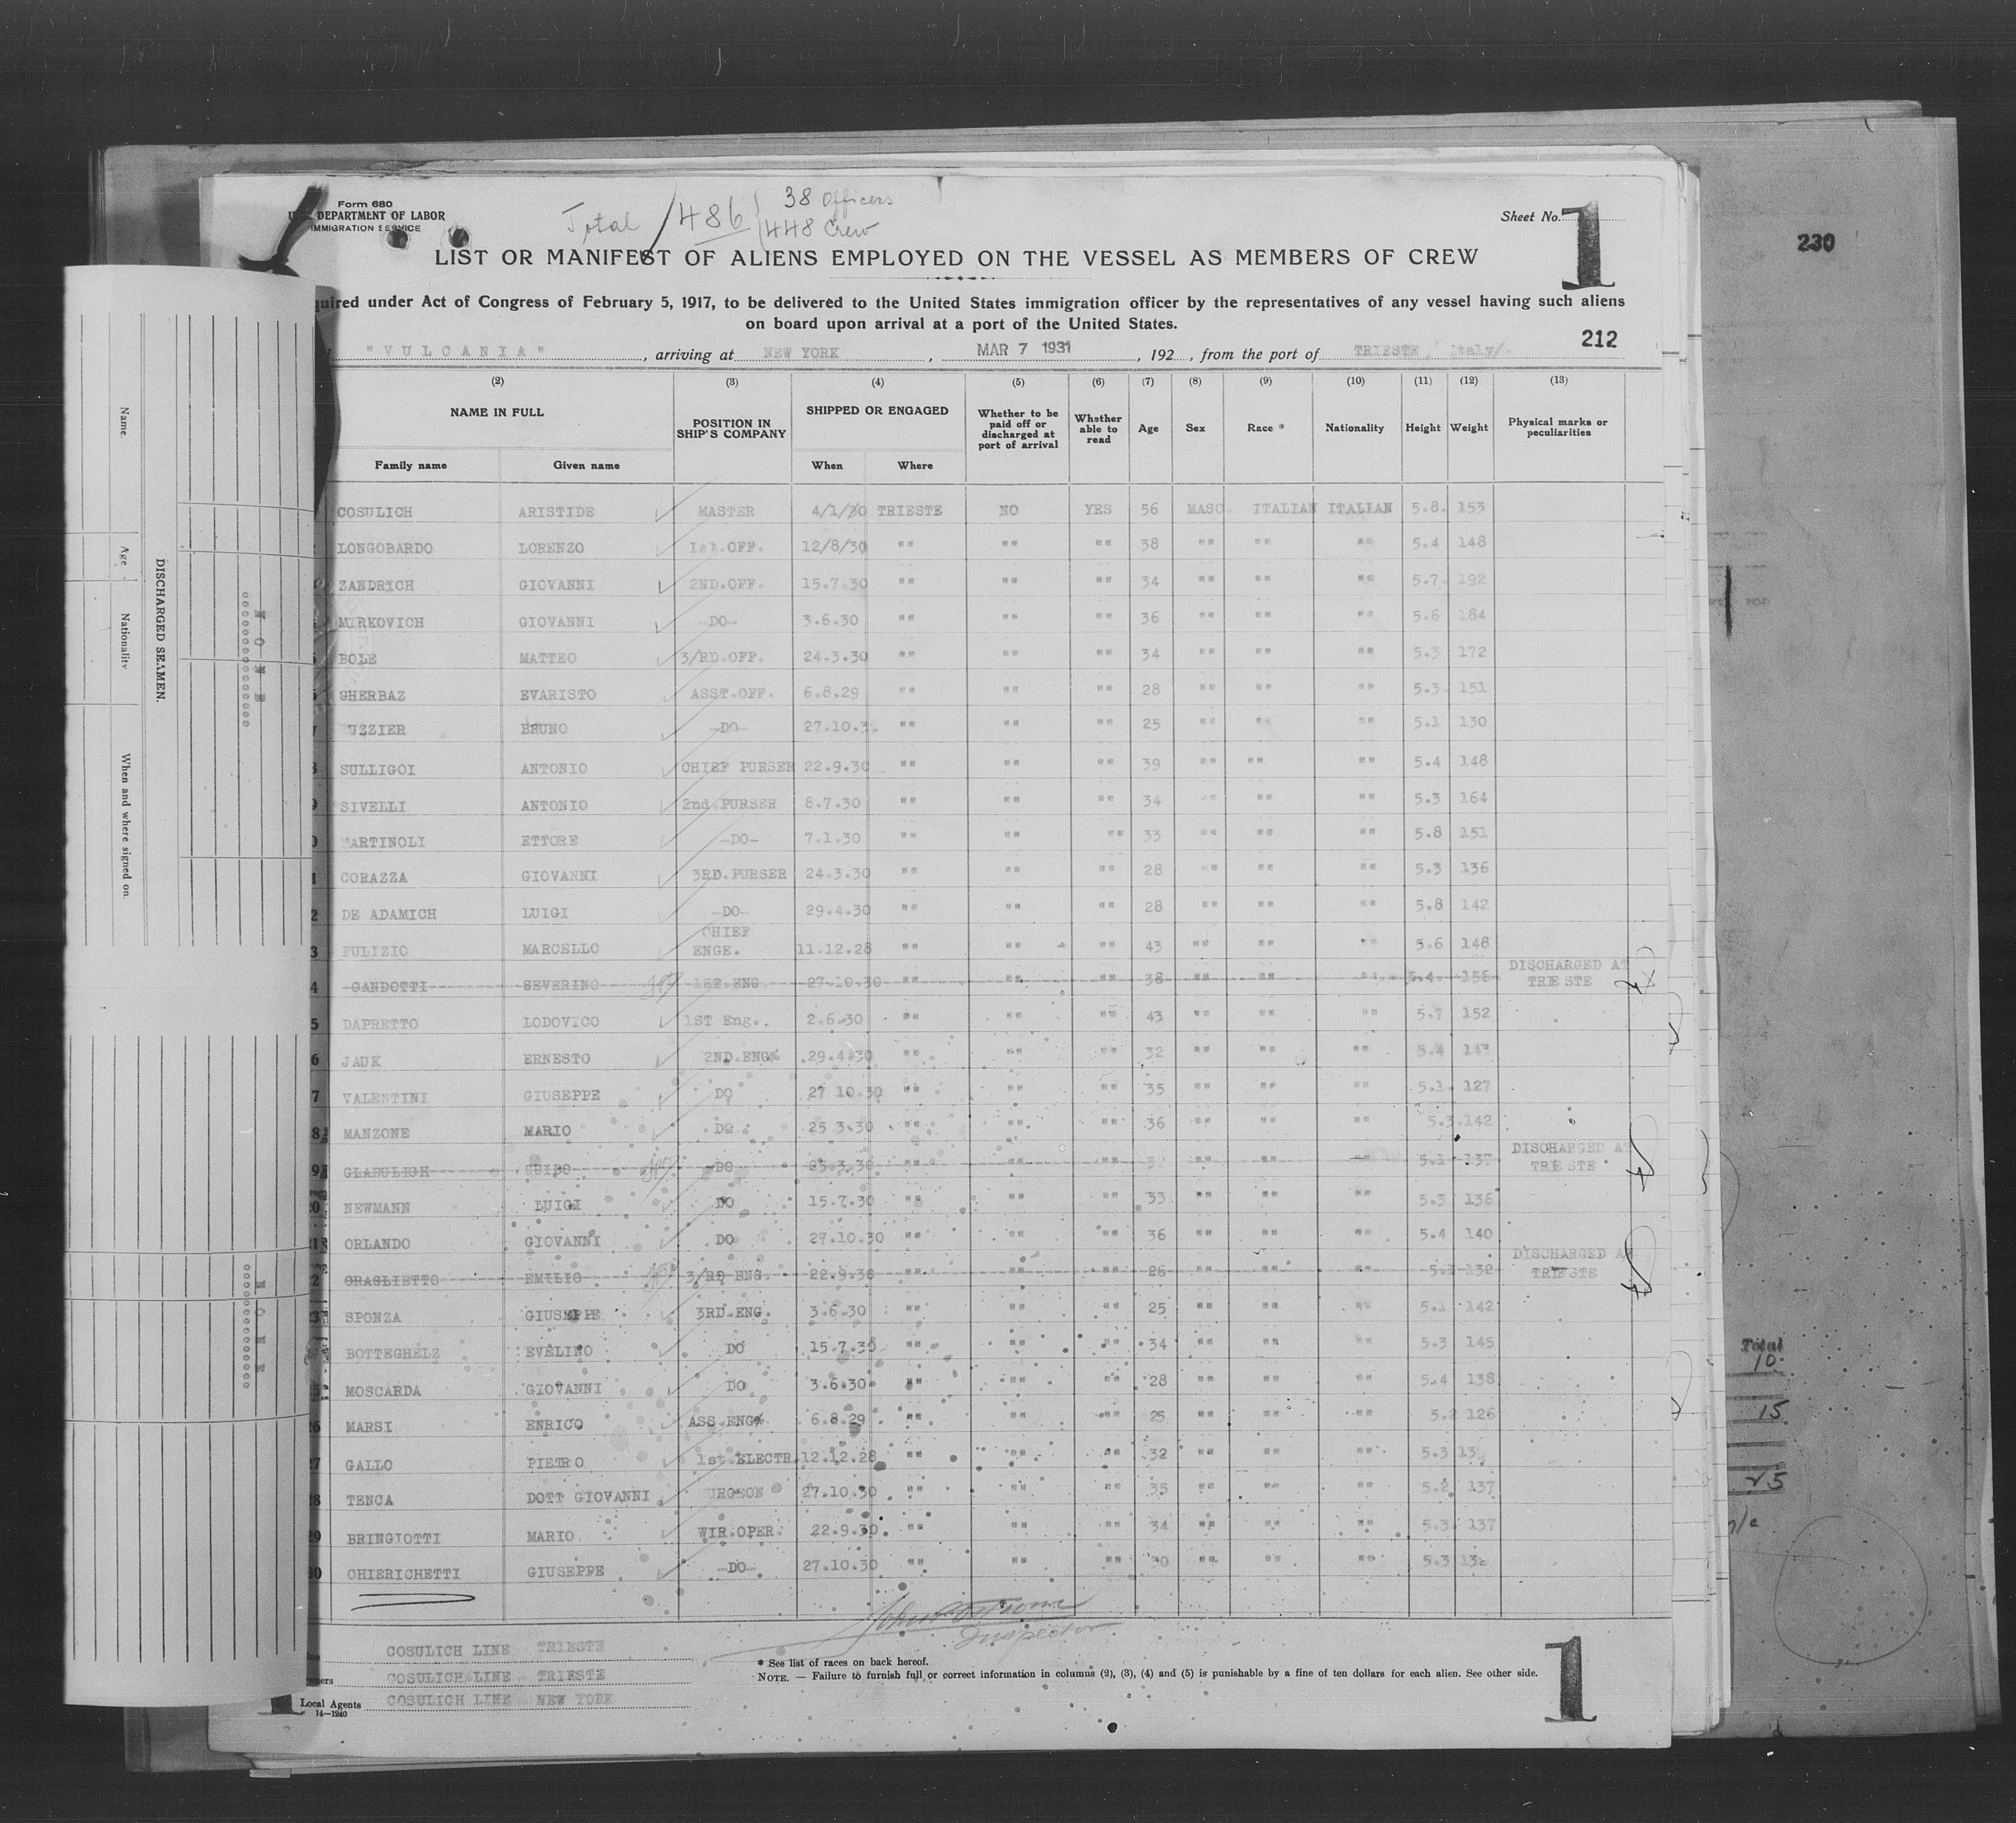 230
Form 680
U.S. DEPARTMENT OF LABOR
IMMIGRATION SERVICE
Total 486 38 Officers
448 Crew
Sheet No. 1
LIST OR MANIFEST OF ALIENS EMPLOYED ON THE VESSEL AS MEMBERS OF CREW
quired under Act of Congress of February 5, 1917, to be delivered to the United States immigration officer by the representatives of any vessel having such aliens
on board upon arrival at a port of the United States.
212
"VULCANIA", arriving at NEW YORK, MAR 7 1931, 192 , from the port of TRIESTE, Italy/.
(2) (3) (4) (5) (6) (7) (8) (9) (10) (11) (12) (13)
NAME IN FULL POSITION IN SHIP'S COMPANY SHIPPED OR ENGAGED Whether to be paid off or discharged at port of arrival Whether able to read Age Sex Race * Nationality Height Weight Physical marks or peculiarities
Family name Given name When Where
COSULICH ARISTIDE MASTER 4/1/30 TRIESTE NO YES 56 MASC. ITALIAN ITALIAN 5.8. 153
LONGOBARDO LORENZO Ist.OFF. 12/8/30 "" "" "" 38 "" "" "" 5.4 148
ZANDRICH GIOVANNI 2ND.OFF. 15.7.30 "" "" "" 34 "" "" "" 5.7. 192
MIRKOVICH GIOVANNI -DO- 3.6.30 "" "" "" 36 "" "" "" 5.6 184
5 BOLE MATTEO 3/RD.OFF. 24.3.30 "" "" "" 34 "" "" "" 5.3 172
6 GHERBAZ EVARISTO ASST.OFF. 6.8.29 "" "" "" 28 "" "" "" 5.3. 151
7 UZZIER BRUNO -DO- 27.10.3 "" "" "" 25 "" "" "" 5.1 130
8 SULLIGOI ANTONIO CHIEF PURSER 22.9.30 "" "" "" 39 "" "" "" 5.4 148
9 SIVELLI ANTONIO 2nd.PURSER 8.7.30 "" "" "" 34 "" "" "" 5.3 164
0 MARTINOLI ETTORE -DO- 7.1.30 "" "" "" 33 "" "" "" 5.8 151
1 CORAZZA GIOVANNI 3RD.PURSER 24.3.30 "" "" "" 28 "" "" "" 5.3 136
2 DE ADAMICH LUIGI -DO- 29.4.30 "" "" "" 28 "" "" "" 5.8 142
3 FULIZIO MARCELLO CHIEF ENGE. 11.12.28 "" "" "" 43 "" "" "" 5.6 148
4 GANDOTTI SEVERINO 1ST.ENG 27.10.30 "" "" "" 38 "" "" "" 5.4. 156 DISCHARGED AT TRIESTE
5 DAPRETTO LODOVICO 1ST Eng.. 2.6.30 "" "" "" 43 "" "" "" 5.7 152
6 JAUK ERNESTO 2ND.ENG% .29.4.30 "" "" "" 32 "" "" "" 5.4 143
7 VALENTINI GIUSEPPE DO 27 10.30 "" "" "" 35 "" "" "" 5.1. 127
8 MANZONE MARIO DO 25 3.30 "" "" "" 36 "" "" "" 5.3.142
9 GLABULICH GUIDO -DO 3.30 "" "" "" "" "" "" 5.1 137 DISCHARGED AT TRIESTE
20 NEWMANN LUIGI DO 15.7.30 "" "" "" 33 "" "" "" 5.3 136
21 ORLANDO GIOVANNI DO 27.10.30 "" "" "" 36 "" "" "" 5.4 140
2 ORAGLIETTO EMILIO 3/RD ENG. 22.9.30 "" "" "" 26 "" "" "" 5.1 132 DISCHARGED AT TRIESTE
23 SPONZA GIUSEPPE 3RD.ENG. 3.6.30 "" "" "" 25 "" "" "" 5.1 142
BOTTEGHELZ EVELINO DO 15.7.30 "" "" "" 34 "" "" "" 5.3 145
5 MOSCARDA GIOVANNI DO 3.6.30 "" "" "" 28 "" "" "" 5.4 138
26 MARSI ENRICO ASS.ENG% 6.8.29 "" "" "" 25 "" "" "" 5.2 126
27 GALLO PIETRO 1st.ELECTR. 12.12.28 "" "" "" 32 "" "" "" 5.3
28 TENCA DOTT GIOVANNI SURGEON 27.10.30 "" "" "" 35 "" "" "" 5.2 137
29 BRINGIOTTI MARIO. WIR.OPER. 22.9.30. "" "" "" 34 "" "" "" 5.3. 137
30 CHIERICHETTI GIUSEPPE -DO- 27.10.30 "" "" "" 30 "" "" "" 5.3
Inspector
COSULICH LINE TRIESTE
Owners COSULICH LINE TRIESTE
Local Agents COSULICH LINE NEW YORK
14-1240
* See list of races on back hereof.
NOTE. — Failure to furnish full or correct information in columns (2), (3), (4) and (5) is punishable by a fine of ten dollars for each alien. See other side.
1
DISCHARGED SEAMEN.
Name. Age Nationality When and where signed on.
NONE
NONE
Total
10
15
25